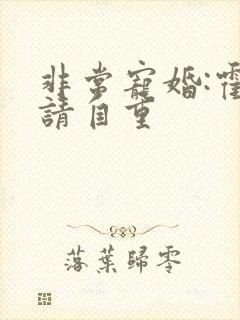 非常寵婚:霍
請自重
落葉歸零